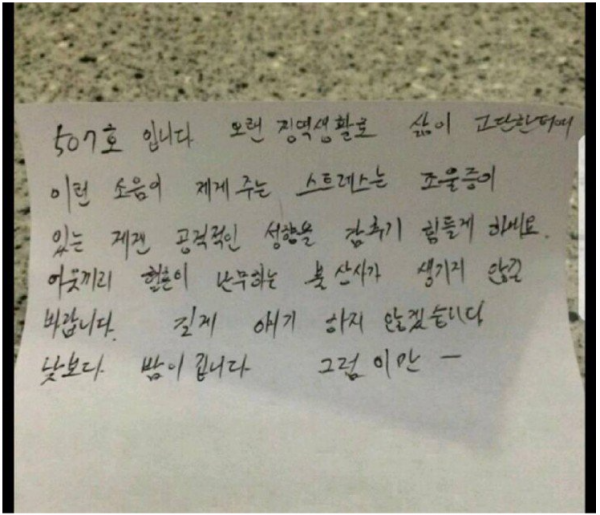 507호 입니다 오랜 징역생활로 삶이 고단한터에
이런 소음이 제게 주는 스트레스는 조울증이
있는 제겐 공격적인 성향을 감추기 힘들게 하네요.
이웃끼리 혈흔이 난무하는 불상사가 생기지 않길
바랍니다. 길게 얘기 하지 않겠습니다
낮보다 밤이 깁니다 그럼 이만 —